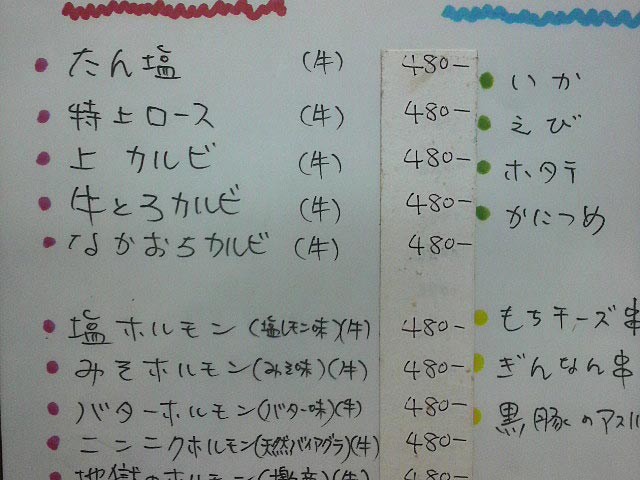 たん塩 (牛) 480-
特上ロース (牛) 480-
上カルビ (牛) 480-
牛とろカルビ (牛) 480-
なかおちカルビ (牛) 480-
塩ホルモン(塩レモン味)(牛) 480-
みそホルモン(みそ味)(牛) 480-
バターホルモン(バター味)(牛) 480-
ニンニクホルモン(天然バイアグラ)(牛) 480-
地獄のホルモン(激辛)(牛) 480-
いか
えび
ホタテ
かにつめ
もちチーズ串
ぎんなん串
黒豚のアスパ